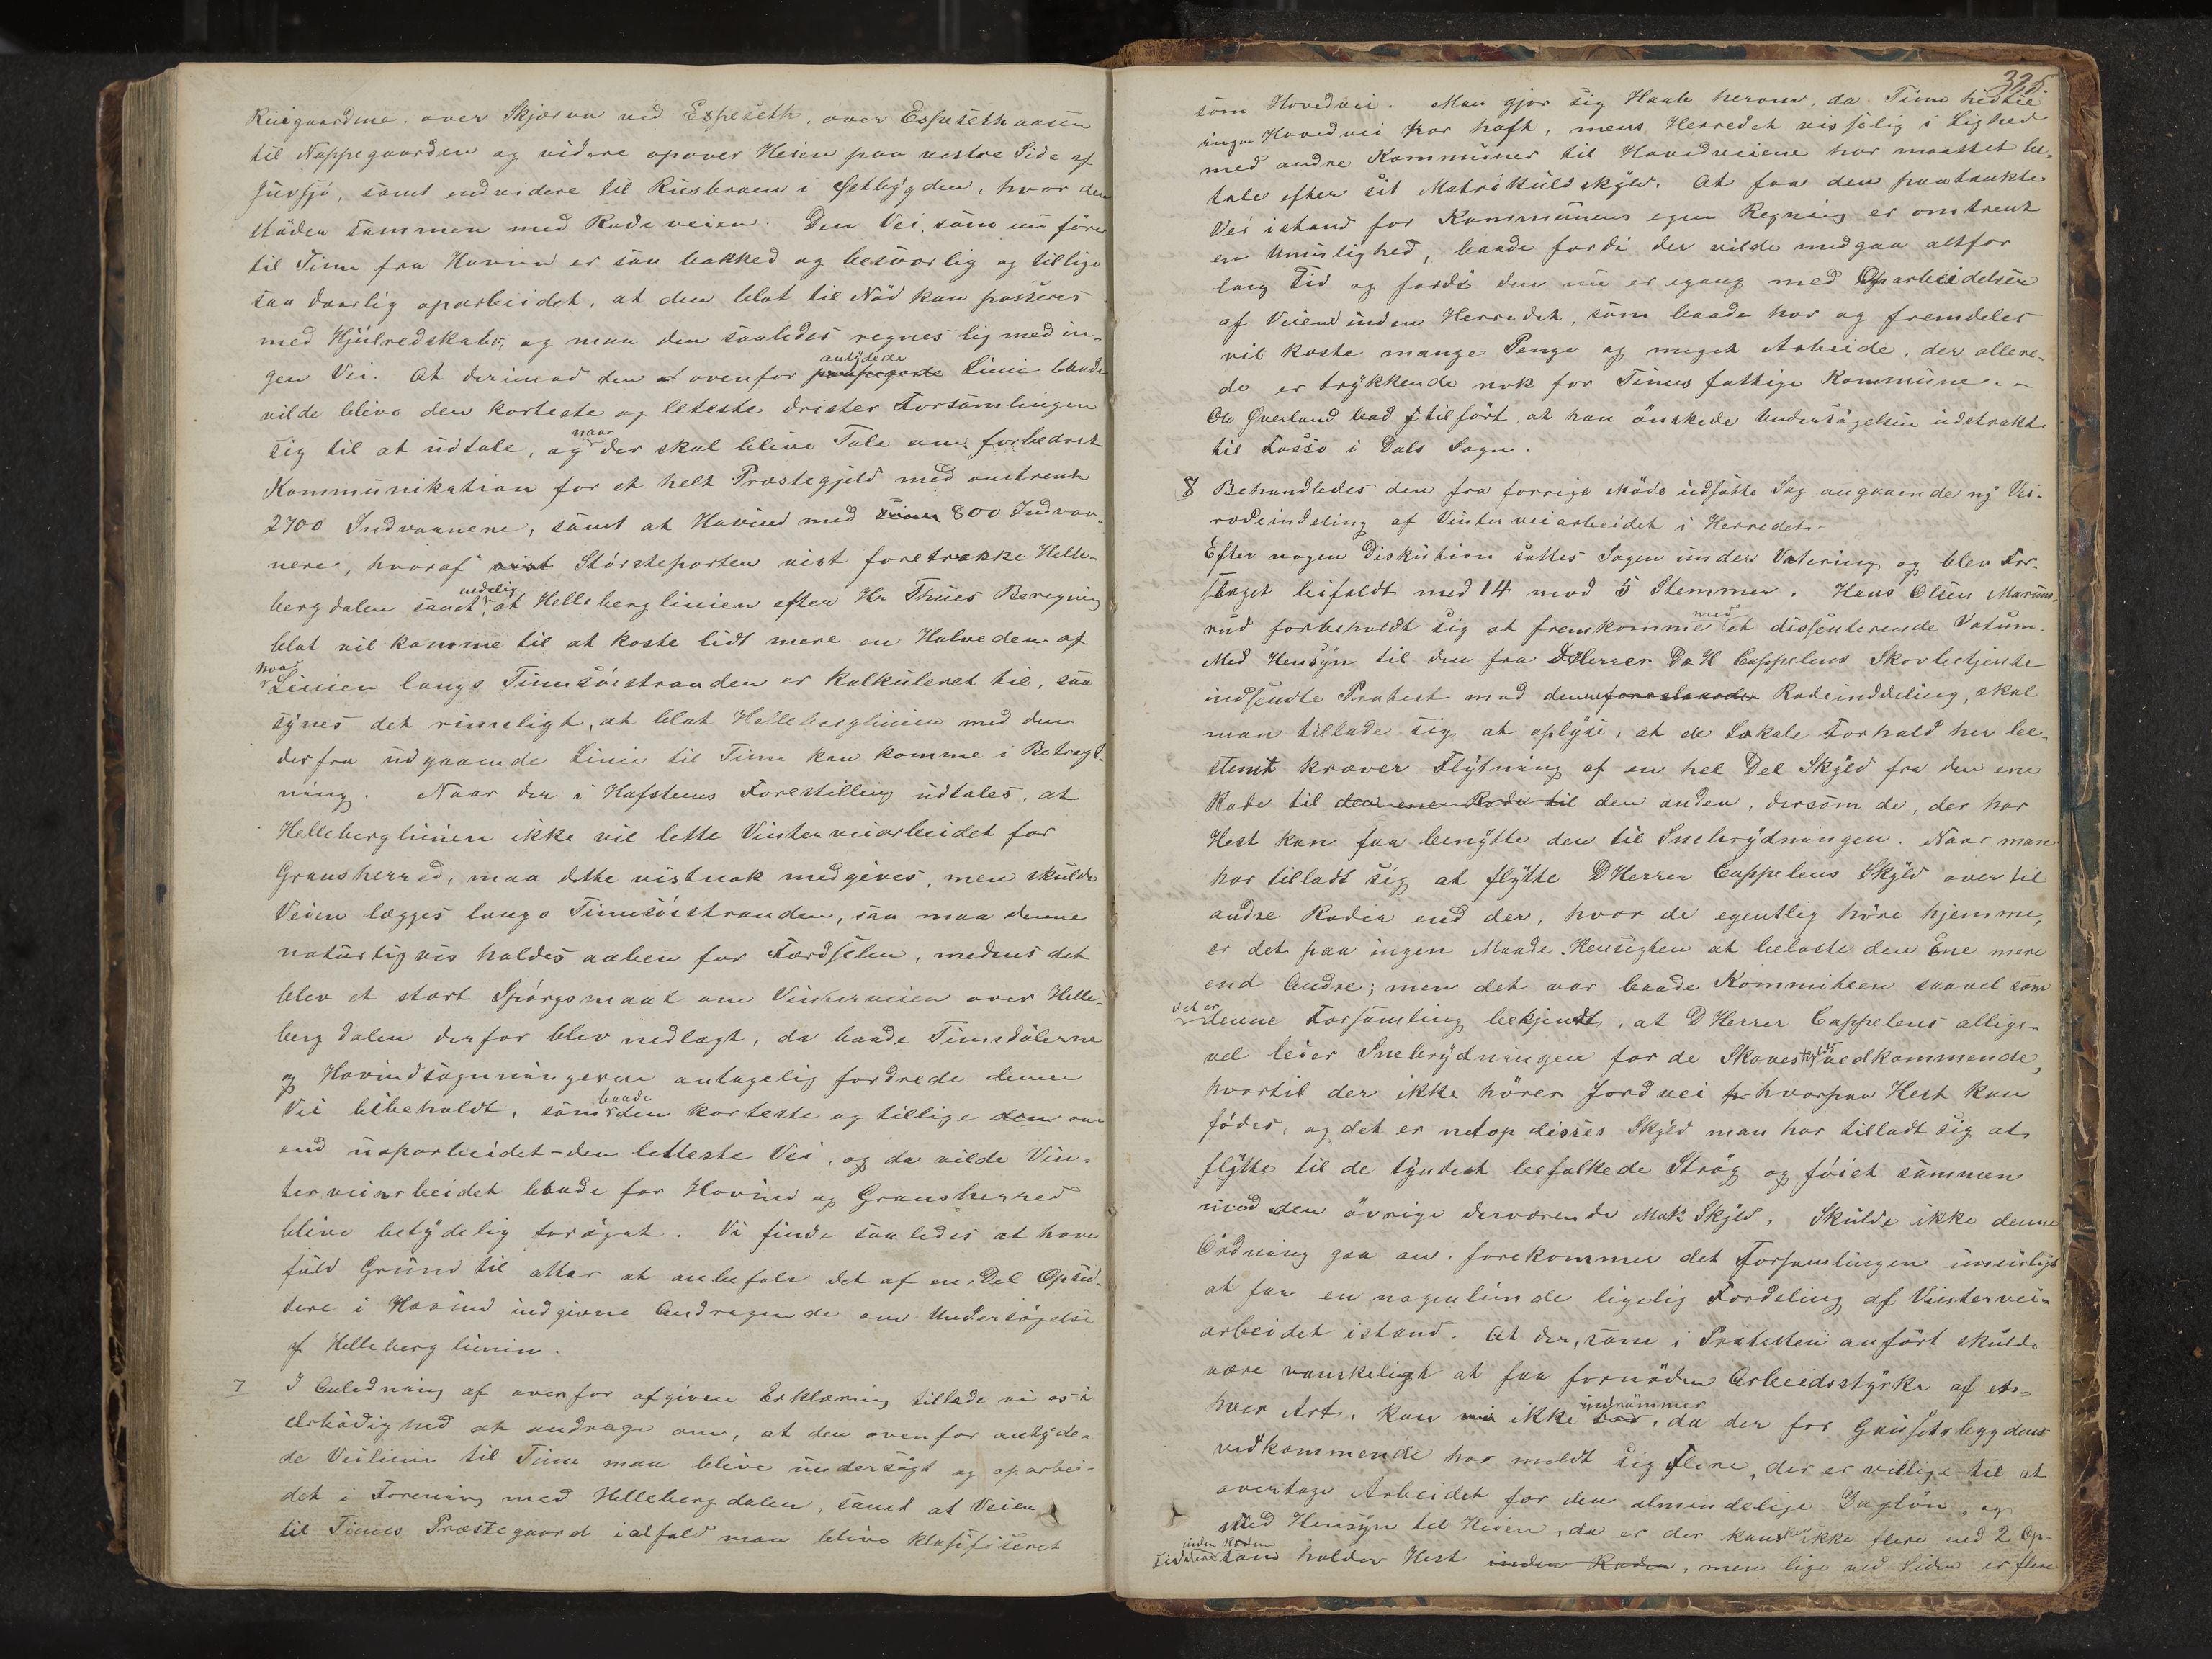 Riisgaardene, over Skjærva ved Espeseth, over Espesethaasen
til Nappegaarden og videre opover Heien paa vestre Side af
Juvsjö, samt endvidere til Rusbraaen i Østbygden, hvor den
stöder sammen med Rodeveien. Den Vei, som nu förer
til Tinn fra Hovind er saa bakked og besværlig og tillige
saa daarlig oparbeidet, at den blot til Nöd kan passeres
med Hjulredskaber, og maa den saaledes regnes lig med in-
gen Vei. At derimod den ovenfor antydede Linie baade
vilde blive den korteste og leteste drister Forsamlingen
sig til at udtale, og naar der skal blive Tale om forbedret
Kommunikation for et helt Præstegjeld med omtrent
2700 Indvaanere, samt at Hovind med 800 Indvaa-
nere, hvoraf Störsteparten vist foretrække Helle-
bergdalen samt endelig at Helleberglinien efter Hr Thues Beregning
blot vil komme til at koste lidt mere en Halveden af
hvad Linien langs Tinnsöestranden er kalkuleret til, saa
synes det rimeligt, at blot Helleberglinien med den
derfra udgaaende Linie til Tinn kan komme i Betragt-
ning. Naar der i Hafstens Forestilling udtales, at
Helleberglinien ikke vil lette Vinterveiarbeidet for
Gransherred, maa dette vistnok medgives, men skulde
Veien lægges langs Tinnsöestranden, saa maa denne
naturligvis holdes aaben for Færdselen, medens det
blev et stort Spörgsmaal om Vinterveien over Helle-
bergdalen derfor blev nedlagt, da baade Tinndölerne
og Hovindsogningerne antagelig fordrede denne
Vei bibeholdt, som baade den korteste og tillige om
end uoparbeidet - den letteste Vei, og da vilde Vin-
terveiarbeidet baade for Hovind og Gransherred
blive betydelig forøget. Vi finde saaledes at have
fuld Grund til atter at anbefale det af en Del Opsid-
dere i Hovind indgivne Andragende om Undersögelse
af Helleberglinien.
7 I Anledning af ovenfor afgivne Erklæring tillade vi os i
Ærbödighed at andrage om, at den ovenfor antyde-
de Veilinie til Tinn maa blive undersögt og oparbei-
det i Forening med Hellebergdalen, samt at Veien
til Tinns Præstegaard ialfald maa blive klasificeret
325.
som Hovedvei. Man gjør sig Haab herom, da Tinn hidtil
ingen Hovedvei har haft, mens Herredet visselig i Lighed
med andre Kommuner til Hovedveiene har maattet be-
tale efter sit Matrikulskyld. At faa den paatænkte
Vei istand for Kommunens egen Regning er omtrent
en Umulighed, baade fordi der vilde medgaa altfor
lang Tid og fordi den nu er igang med Oparbeidelsen
af Veiene inden Herredet, som baade har og fremdeles
vil koste mange Penge og meget Arbeide, der allere-
de er trykkende nok for Tinns fattige Kommune. -
Ole Øverland bad tilfört, at han önskede Undersögelsen udstrakt
til Fosso i Dals Sogn.
8 Behandledes den fra forrige Möde udsatte Sag angaaende ny Vei-
rodeinddeling af Vinterveiarbeidet i Herredet. -
Efter nogen Diskution sattes Sagen under Votering og blev For-
slaget bifaldt med 14 mod 5 Stemmer. Hans Olsen Marum-
rud forbeholdt sig at fremkomme med et dissenterende Votum.
Med Hensyn til den fra D'Herrer D & H Cappelens Skovbetjente
indsendte Protest mod denne Rodeinddeling, skal
man tillade sig at oplyse, at de Lokale Forhold her be-
stemt kræver Flytning af en hel Del Skyld fra den ene
Rode til den anden, dersom de, der har
Hest kan faa benytte den til Snebrydningen. Naar man
har tilladt sig at flytte D'Herrer Cappelens Skyld over til
andre Roder end der, hvor de egentlig höre hjemme,
er det paa ingen Maade Hensigten at belaste den Ene mere
end Andre; men det var baade Kommiteen saavel som
det er denne Forsamling bekjendt, at D'Herrer Cappelens allige-
vel leier Snebrydningen for de Skoves vedkommende,
hvortil der ikke hörer Jordvei hvorpaa Hest kan
födes, og det er netop disses Skyld man har tilladt sig at
flytte til de tyndest befolkede Strög og föiet sammen
med den övrige derværende Matr. Skyld. Skulde ikke denne
Ordning gaa an, forekommer det Forsamlingen umuligt
at faa en nogenlunde ligelig Fordeling af Vintervei-
arbeidet istand. At der, som i Protesten anfört skulde
være vanskeligt at faa fornöden Arbeidsstyrke af en-
hver Art, kan ikke indrömmes, da der for Gausetbygdens
vedkommende har meldt sig Flere, der er villige til at
overtage Arbeidet for den almindelige Daglön, og
med Hensyn til Heien, da er der kanske ikke flere end 2 Op-
siddere inden Roden som holder Hest, men lige ved Siden er flere